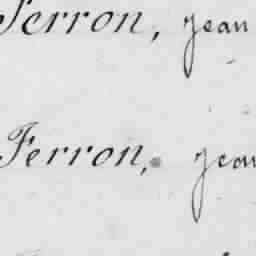 Ferron, jean
Ferron, jean